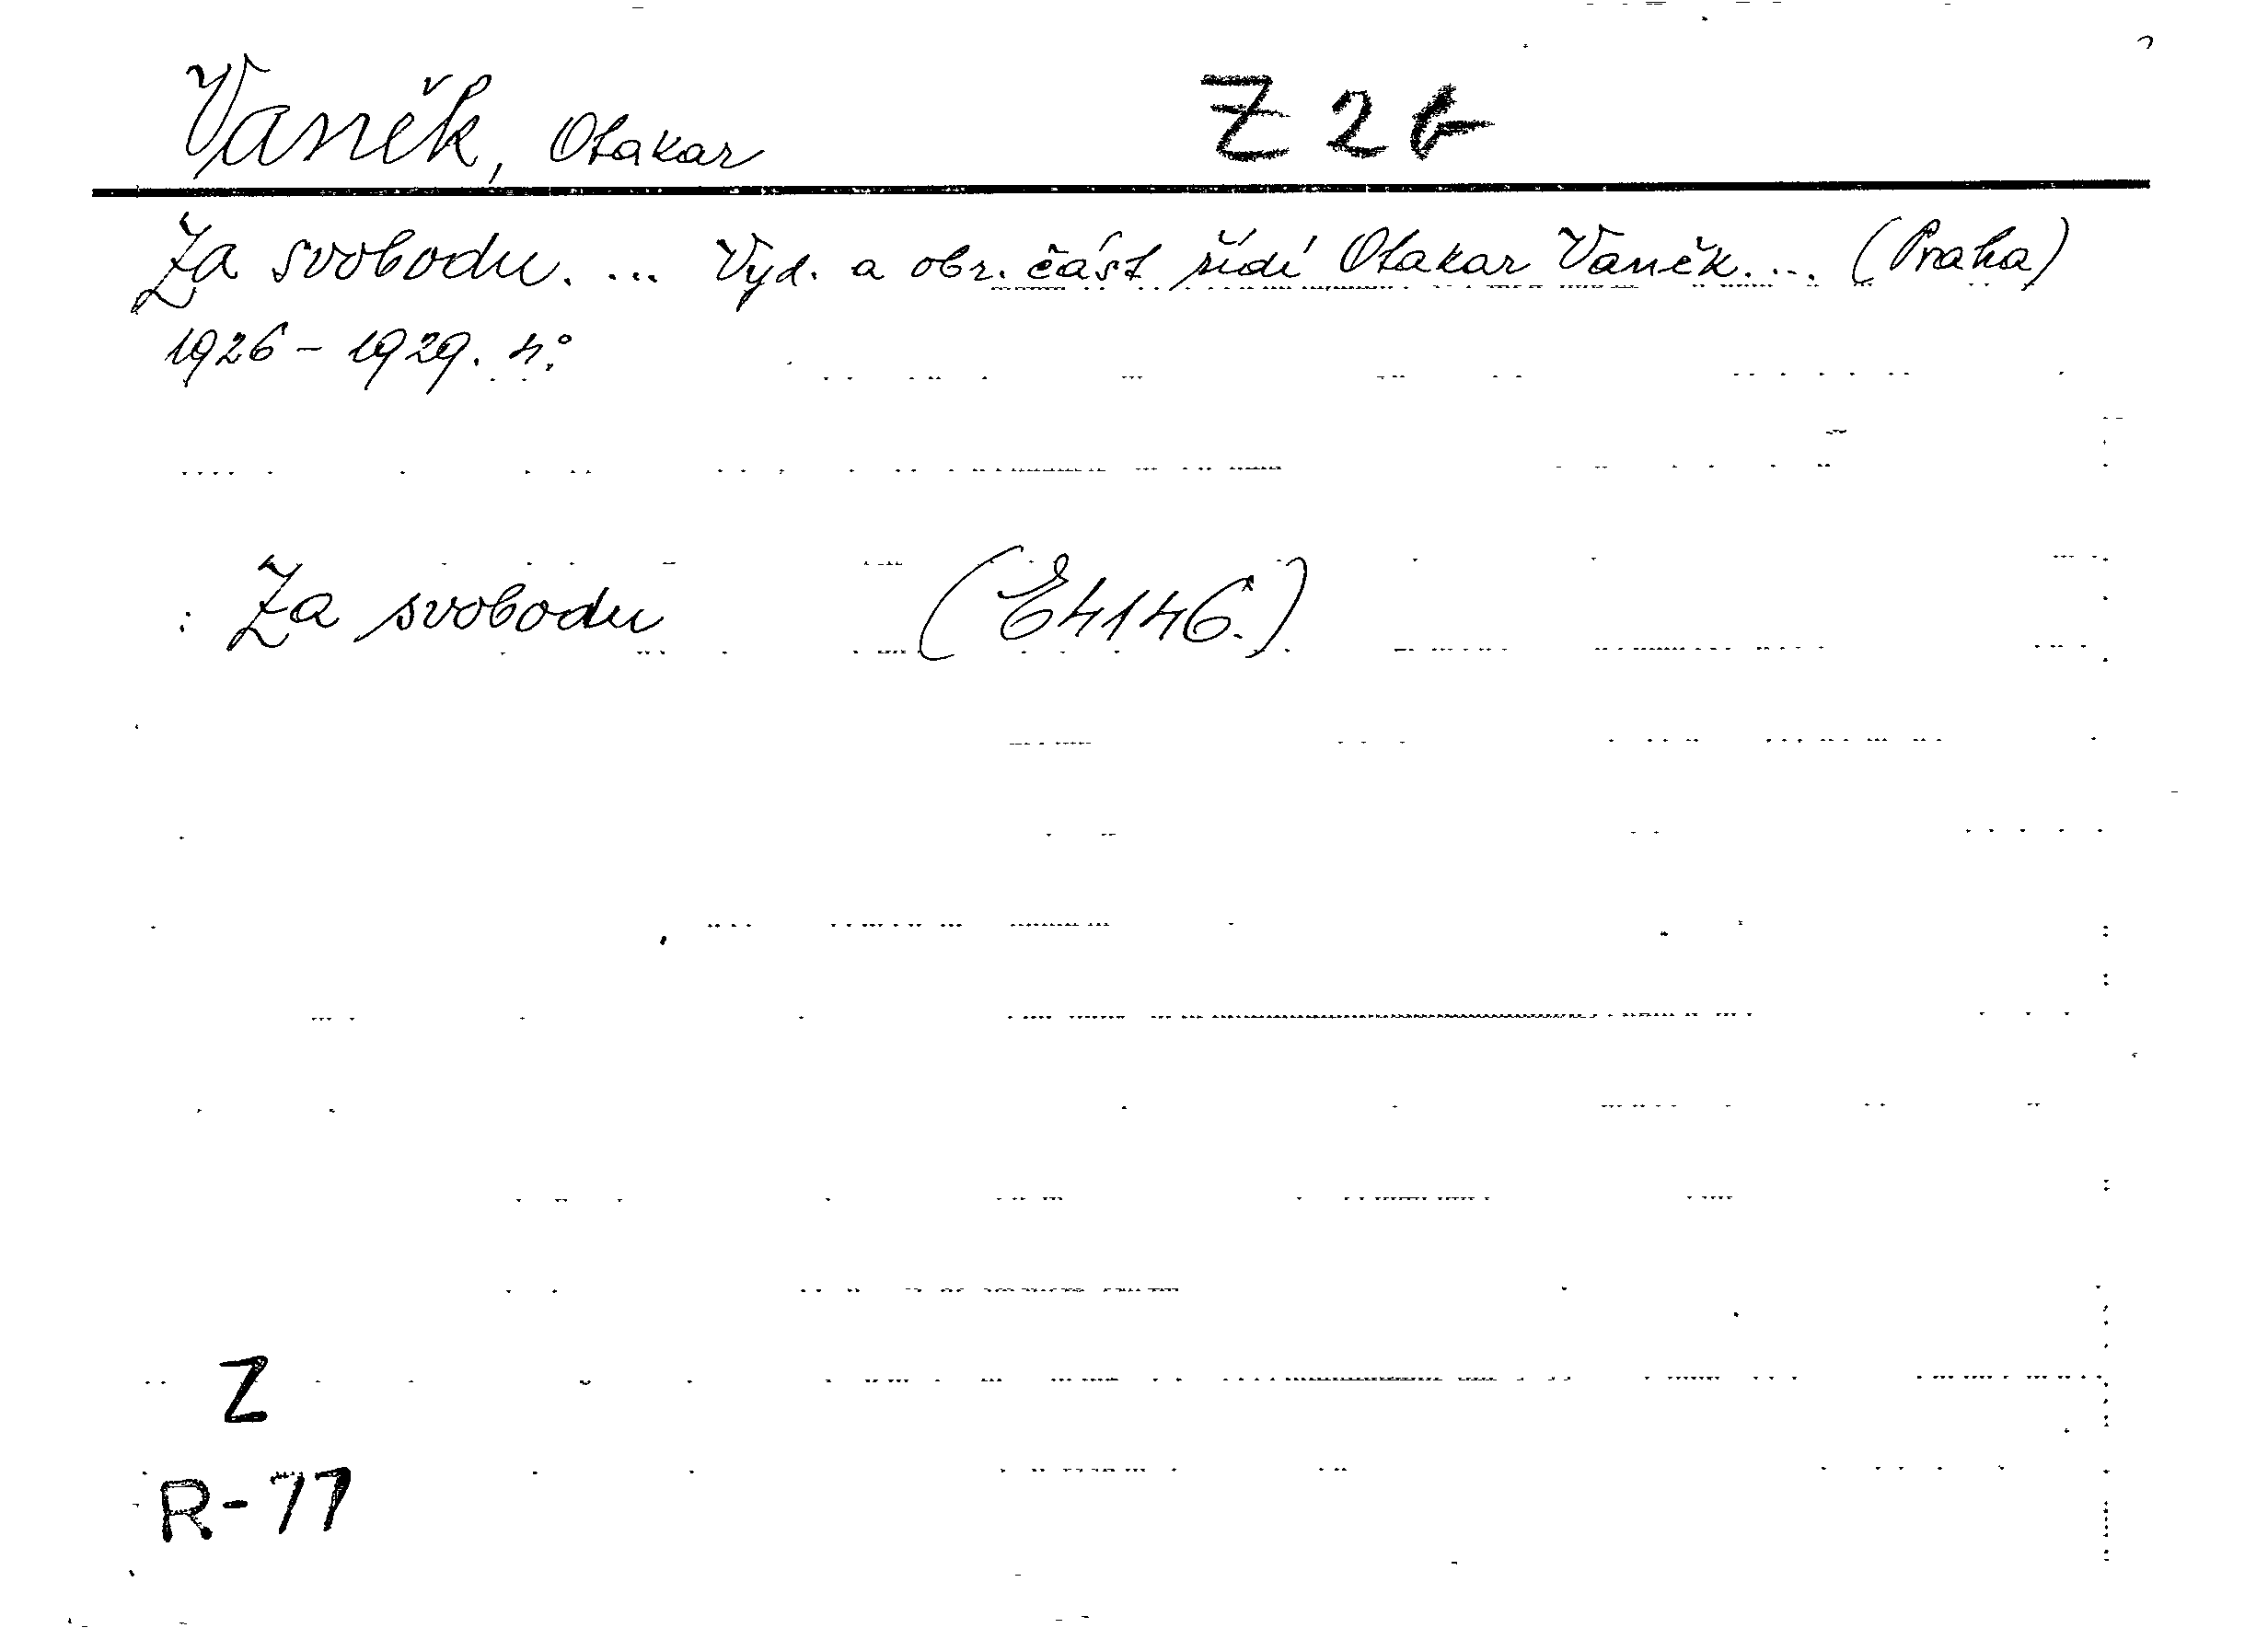 Vaněk, Otakar Z 2 b
Za svobodu. ... Vyd. a obr. část řídí Otakar Vaněk. ... (Praha)
1926 - 1929. 4°.
: Za svobodu (E4146.)
Z
R-77